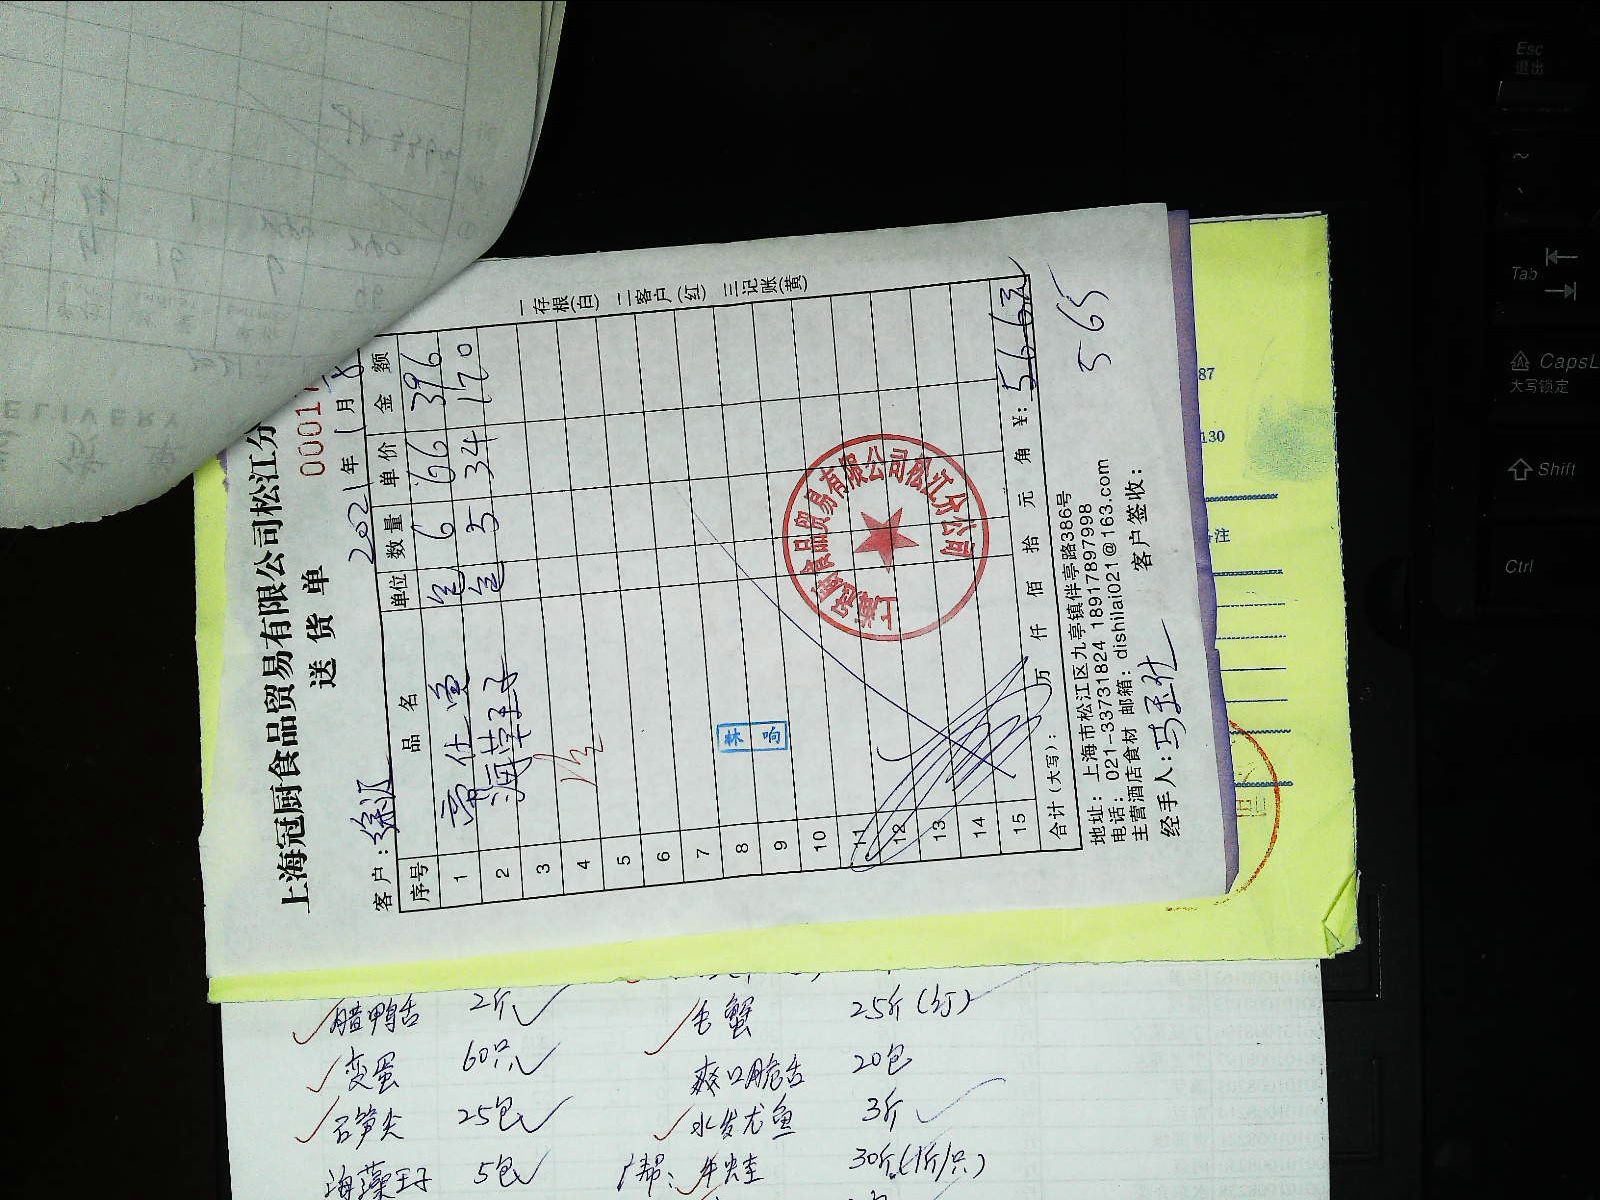 上海冠厨食品贸易有限公司松江分
送货单
0001
客户：徐汇
2021年1月
序号 品名 单位 数量 单价 金额
1 包 6 66 396
2 海藻王子 包 5 34 170
3
4
5
6
7
8
9
10
11
12
13
14
15
合计(大写)： 万 仟 佰 拾 元 角 ¥：566元
565
地址：上海市松江区九亭镇伴亭路386号
电话：021-33731824 18917897998
主营酒店食材 邮箱：dishilai021@163.com
经手人：冯玉仕 客户签收：
一存根(白) 二客户(红) 三记账(黄)
上海冠厨食品贸易有限公司松江分公司
87
130
备注
腊鸭舌 2斤 毛蟹 25斤
变蛋 60只 爽口脆舌 20包
石笋尖 25包 水发尤鱼 3斤
海藻王子 5包 牛蛙 30斤(1斤/只)
Esc
退出
~
Tab
CapsL
大写锁定
Shift
Ctrl